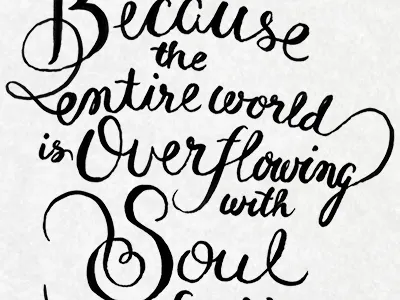 Because
the
entire world
is Overflowing
with
Soul